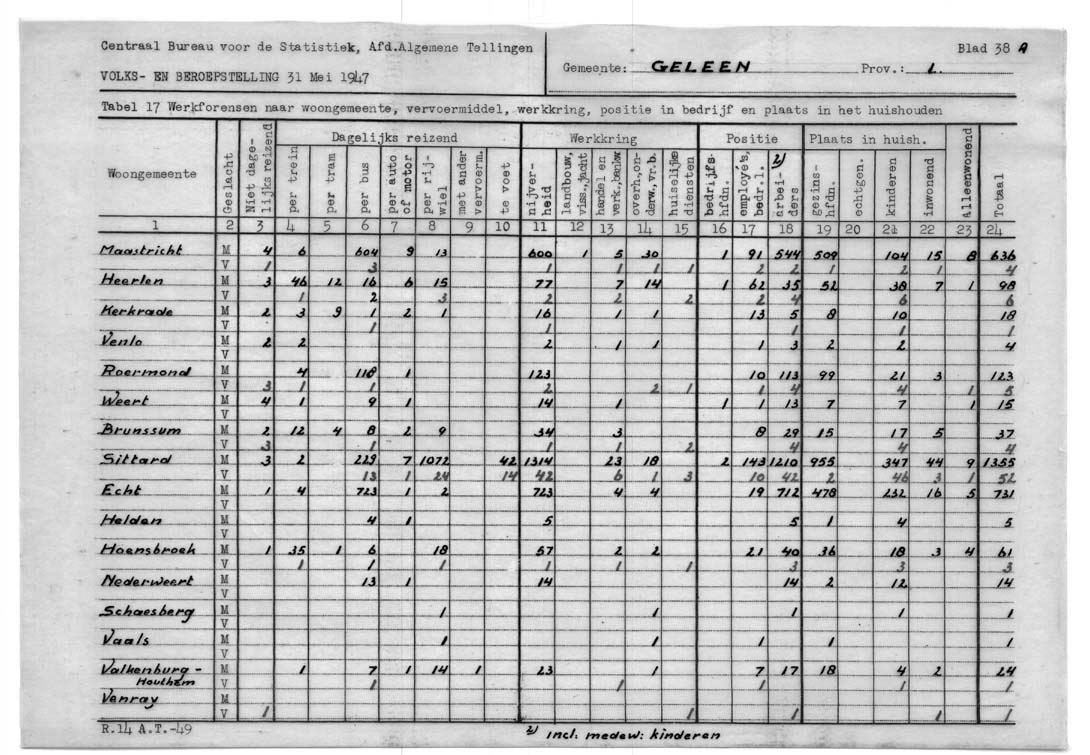 Centraal Bureau voor de Statistiek, Afd.Algemene Tellingen
Blad 38 A
VOLKS- EN BEROEPSTELLING 31 Mei 1947
Gemeente: GELEEN Prov.: L.
Tabel 17 Werkforensen naar woongemeente, vervoermiddel, werkkring, positie in bedrijf en plaats in het huishouden
Woongemeente Geslacht Niet dagelijks reizend Dagelijks reizend Werkkring Positie Plaats in huish. Alleenwonend Totaal
per trein per tram per bus per auto of motor per rijwiel met ander vervoerm. te voet nijverheid landbouw, viss.,jacht handel en verk.,bankw. overh.,onderw.,vr.b. huiselijke diensten bedrijfshfdn. employé's, bedr.l. 2) arbeiders gezinshfdn. echtgen. kinderen inwonend
1 2 3 4 5 6 7 8 9 10 11 12 13 14 15 16 17 18 19 20 21 22 23 24
Maastricht M 4 6 604 9 13 600 1 5 30 1 91 544 509 104 15 8 636
V 1 3 1 1 1 1 2 2 1 2 1 4
Heerlen M 3 46 12 16 6 15 77 7 14 1 62 35 52 38 7 1 98
V 1 2 3 2 2 2 2 4 6 6
Kerkrade M 2 3 9 1 2 1 16 1 1 13 5 8 10 18
V 1 1 1 1 1
Venlo M 2 2 2 1 1 1 3 2 2 4
V
Roermond M 4 118 1 123 10 113 99 21 3 123
V 3 1 1 2 2 1 1 4 4 1 5
Weert M 4 1 9 1 14 1 1 1 13 7 7 1 15
V
Brunssum M 2 12 4 8 2 9 34 3 8 29 15 17 5 37
V 3 1 1 1 2 4 4 4
Sittard M 3 2 229 7 1072 42 1314 23 18 2 143 1210 955 347 44 9 1355
V 13 1 24 14 42 6 1 3 10 42 2 46 3 1 52
Echt M 1 4 723 1 2 723 4 4 19 712 478 232 16 5 731
V
Helden M 4 1 5 5 1 4 5
V
Hoensbroek M 1 35 1 6 18 57 2 2 21 40 36 18 3 4 61
V 1 1 1 1 1 1 3 3 3
Nederweert M 13 1 14 14 2 12 14
V
Schaesberg M 1 1 1 1 1
V
Vaals M 1 1 1 1 1
V
Valkenburg- M 1 7 1 14 1 23 1 7 17 18 4 2 24
Houthem V 1 1 1 1 1
Venray M
V 1 1 1 1 1
R.14 A.T.-49
2) incl: medew: kinderen